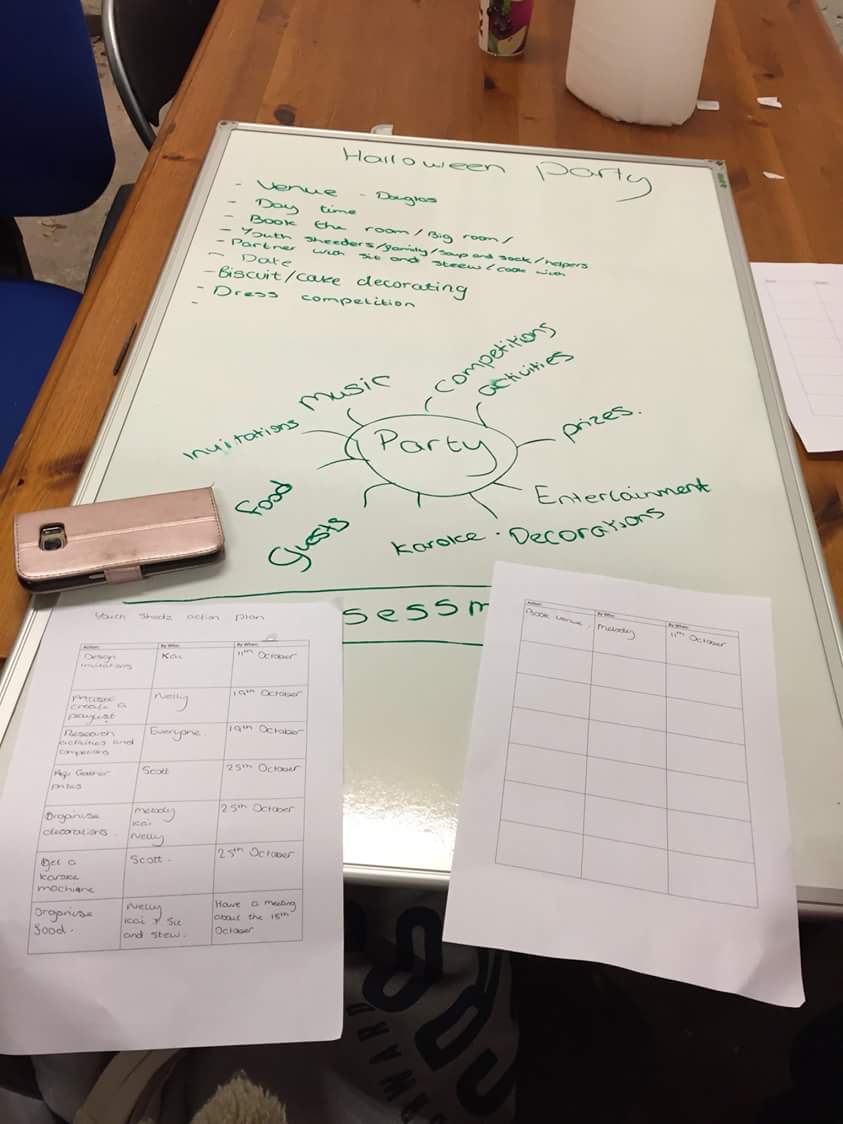 Halloween party
- Venue - Douglas
- Day time
- Book the room/Big room/
- Youth sheeders/family/soup and sock/helpers
- Partner with sit and steew/cook with
- Date
- Biscuit/cake decorating
- Dress competition
-
music
competitions
activities
Invitations
Party
prizes.
Food
Entertainment
Guests
Karoke
Decorations
sessm
Youth Shedz action plan
Action: By Who: By When:
Design invitations Kai 11th October
create a playlist Nelly 19th October
Research activities and Everyone. 19th October
Gather prizes Scott 25th October
Organise decorations. Melody Kai Nelly 25th October
Get a karoke machine Scott. 25th October
Organise food. Nelly Kai + Sit and stew. Have a meeting about the 15th October
Action: By Who: By When:
Book venue Melody 11th October
WARD